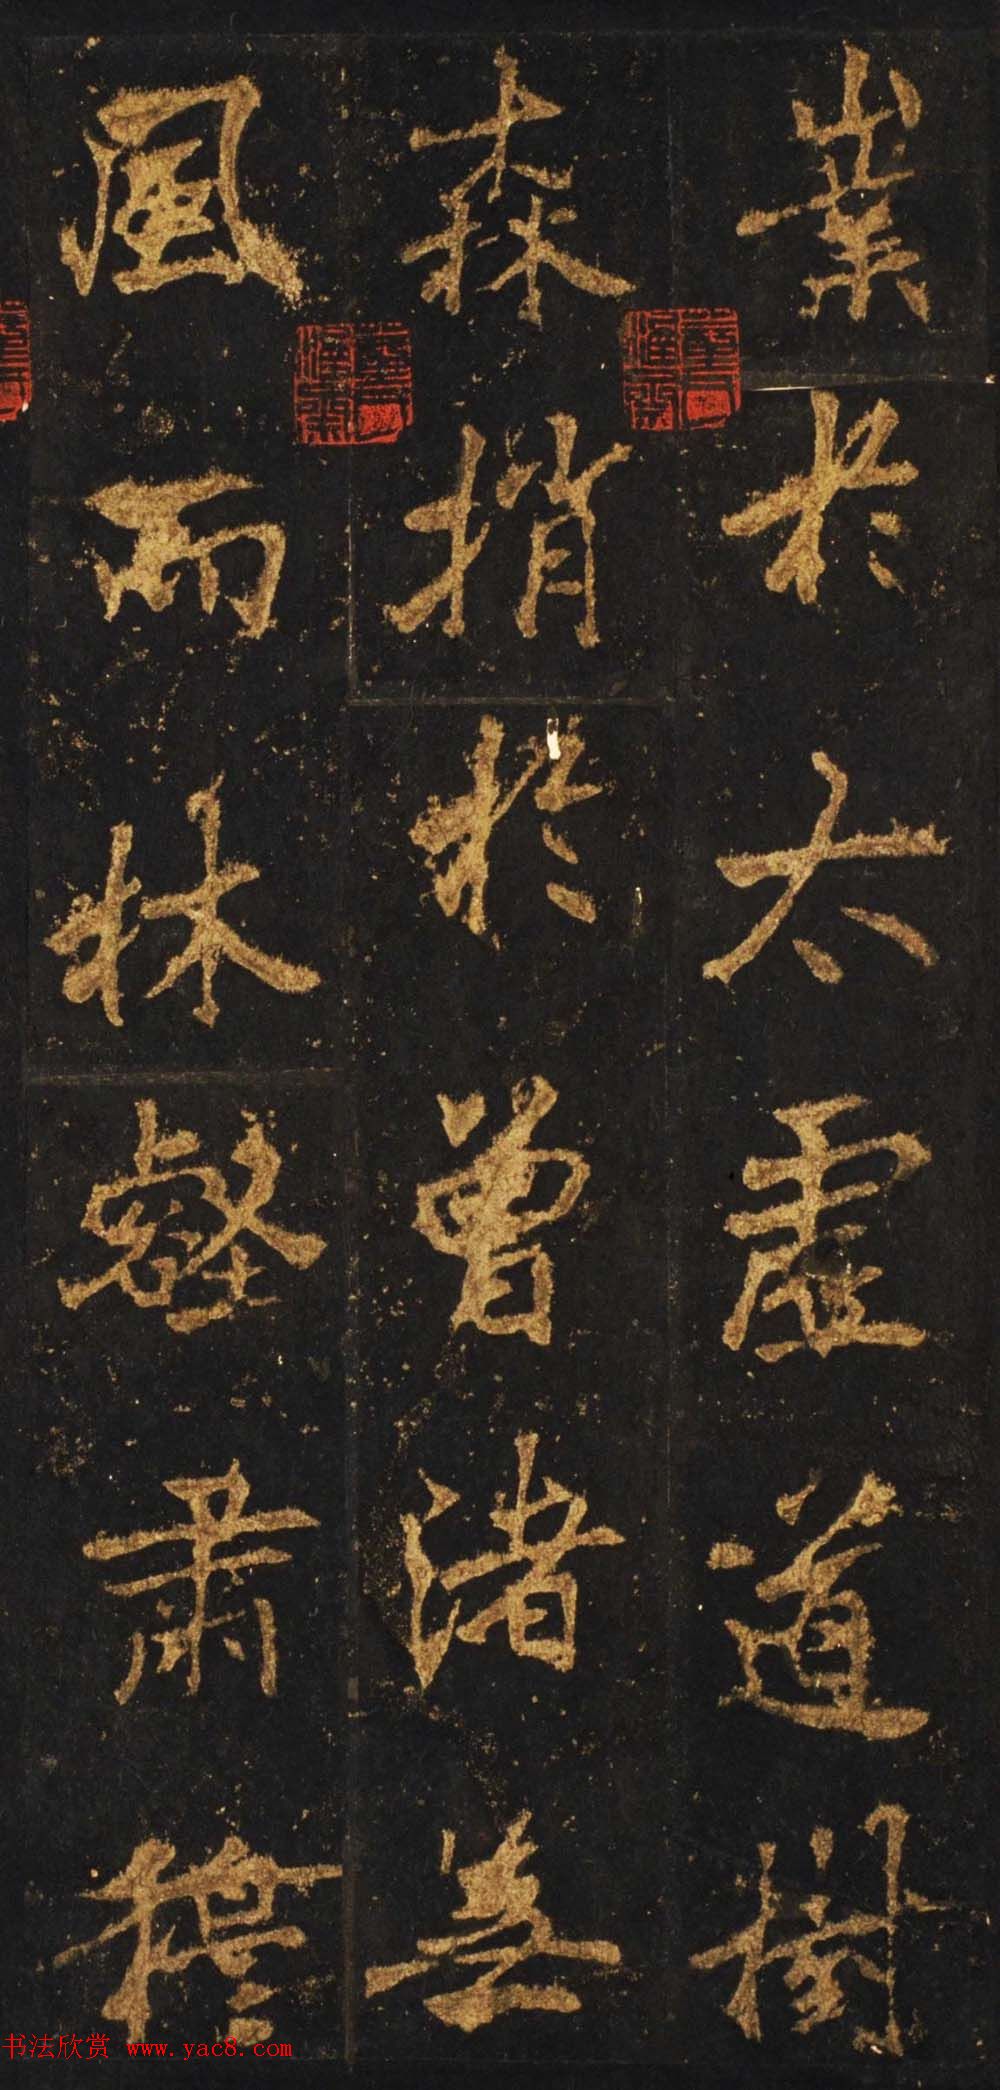 嶪於太虛道樹
森捎於曾渚無
風而林壑肅穆
书法欣赏 www.yac8.com